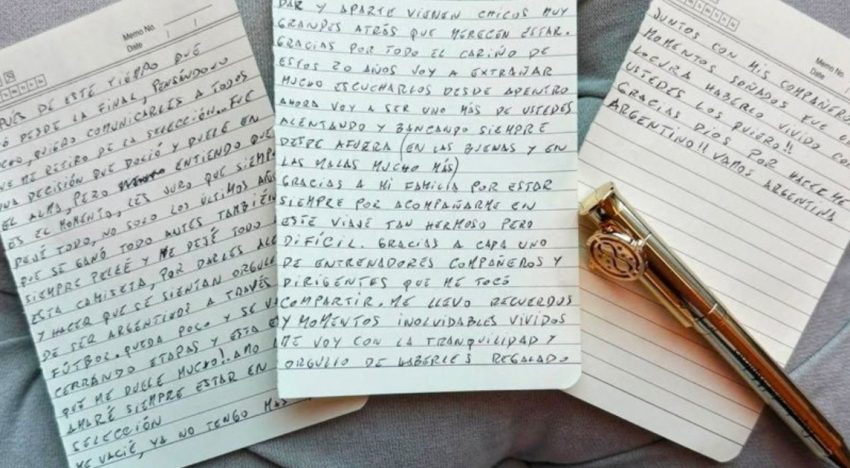 Memo No.
Date / /
PUÉS DE ESTE TIEMPO QUE
Ó DESDE LA FINAL, PENSÁNDOLO
CHO, QUIERO COMUNICARLES A TODOS
E ME RETIRO DE LA SELECCIÓN.. FUE
UNA DECISIÓN QUE DOLIÓ Y DUELE EN
EL ALMA, PERO ENTIENDO QUE
ES EL MOMENTO, LES JURO QUE SIEMP
DEJÉ TODO, NO SOLO LOS ÚLTIMOS AÑOS
QUE SE GANÓ TODO ANTES TAMBIÉN
SIEMPRE PELEÉ Y ME DEJÉ TODO
ESTA CAMISETA, POR DARLES ALE
Y HACER QUE SE SIENTAN ORGULL
DE SER ARGENTINOS A TRAVÉS
FÚTBOL. QUEDA POCO Y SE V
CERRANDO ETAPAS Y ESTA E
QUE ME DUELE MUCHO!. AMO
AMARÉ SIEMPRE ESTAR EN
SELECCIÓN
ME VACIÉ, YA NO TENGO MAS
DAR Y APARTE VIENEN CHICOS MUY
GRANDES ATRÁS QUE MERECEN ESTAR.
GRACIAS POR TODO EL CARIÑO DE
ESTOS 20 AÑOS VOY A EXTRAÑAR
MUCHO ESCUCHARLOS DESDE ADENTRO
AHORA VOY A SER UNO MÁS DE USTEDES
ALENTANDO Y BANCANDO SIEMPRE
DESDE AFUERA (EN LAS BUENAS Y EN
LAS MALAS MUCHO MÁS)
GRACIAS A MI FAMILIA POR ESTAR
SIEMPRE POR ACOMPAÑARME EN
ESTE VIAJE TAN HERMOSO PERO
DIFÍCIL. GRACIAS A CADA UNO
DE ENTRENADORES COMPAÑEROS Y
DIRIGENTES QUE ME TOCÓ
COMPARTIR. ME LLEVO RECUERDOS
Y MOMENTOS INOLVIDABLES VIVIDOS
ME VOY CON LA TRANQUILIDAD Y
ORGULLO DE HABERLES REGALADO
Memo No.
Date /
JUNTOS CON MIS COMPAÑERO
MOMENTOS SOÑADOS FUE U
LOCURA HABERLO VIVIDO CO
USTEDES LOS QUIERO!!
GRACIAS DIOS POR HACERME
ARGENTINO!! VAMOS ARGENTINA